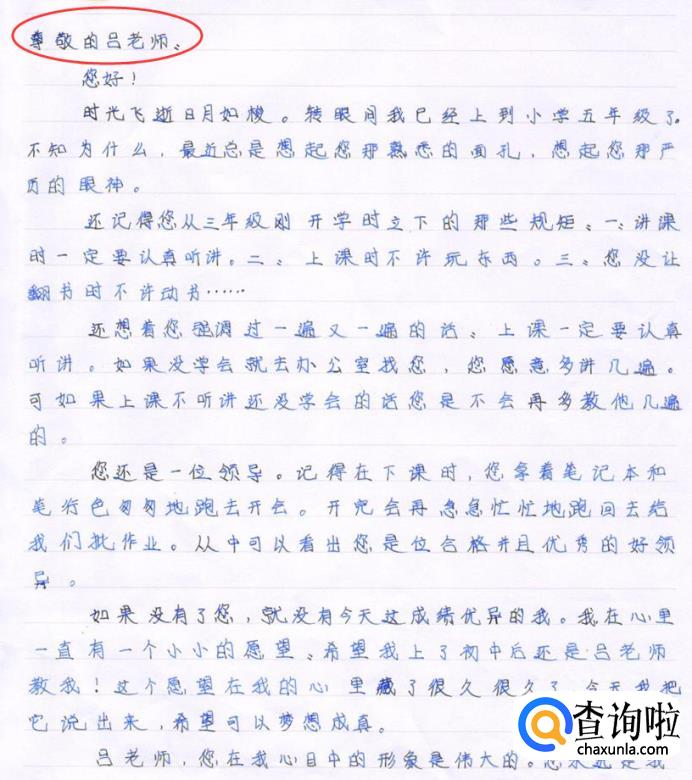 尊敬的吕老师:
您好!
时光飞逝日月如梭。转眼间我已经上到小学五年级了。
不知为什么,最近总是想起您那熟悉的面孔,想起您那严
厉的眼神。
还记得您从三年级刚开学时立下的那些规矩:一、讲课
时一定要认真听讲。二、上课时不许玩东西。三、您没让
翻书时不许动书……
还想着您强调过一遍又一遍的话:上课一定要认真
听讲。如果没学会就去办公室找您,您愿意多讲几遍。
可如果上课不听讲还没学会的话您是不会再多教他几遍
的。
您还是一位领导。记得在下课时,您拿着笔记本和
笔行色匆匆地跑去开会。开完会再急急忙忙地跑回去给
我们批作业。从中可以看出您是位合格并且优秀的好领
导。
如果没有了您,就没有今天这成绩优异的我。我在心里
一直有一个小小的愿望:希望我上了初中后还是吕老师
教我!这个愿望在我的心里藏了很久很久了,今天我把
它说出来,希望可以梦想成真。
吕老师,您在我心目中的形象是伟大的。您永远是我
查询啦
chaxunla.com